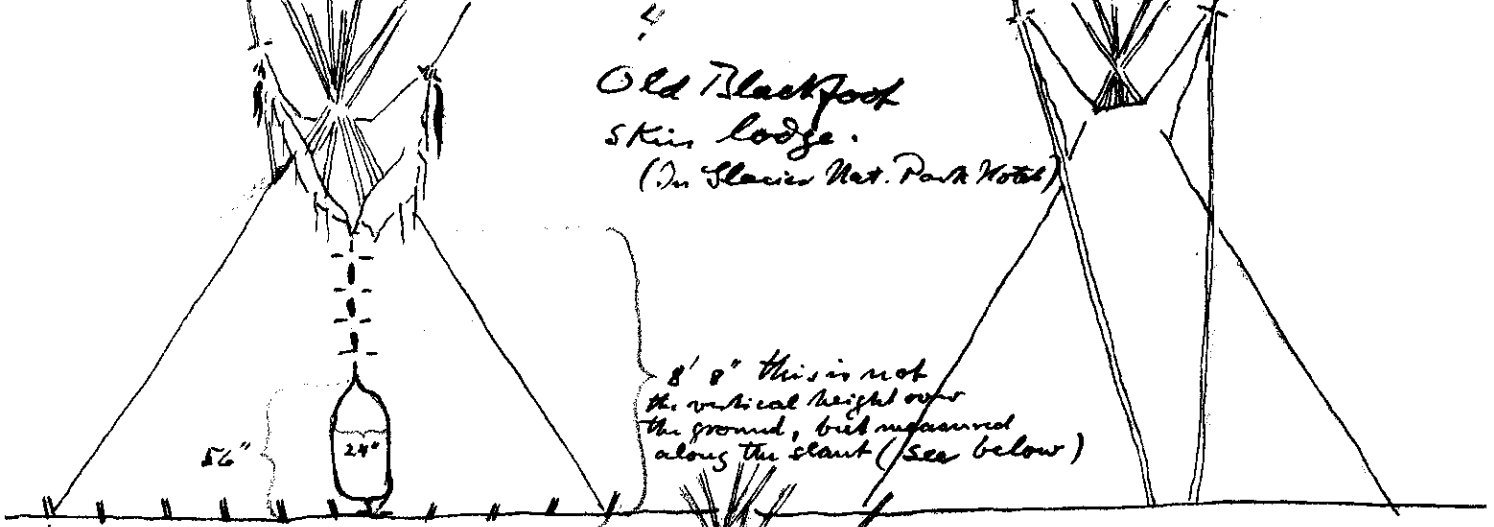 Old Blackfoot
skin lodge.
(In Glacier Nat. Park Hotel)
8' 8" this is not
the vertical height over
the ground, but measured
along the slant (see below)
56"
24"